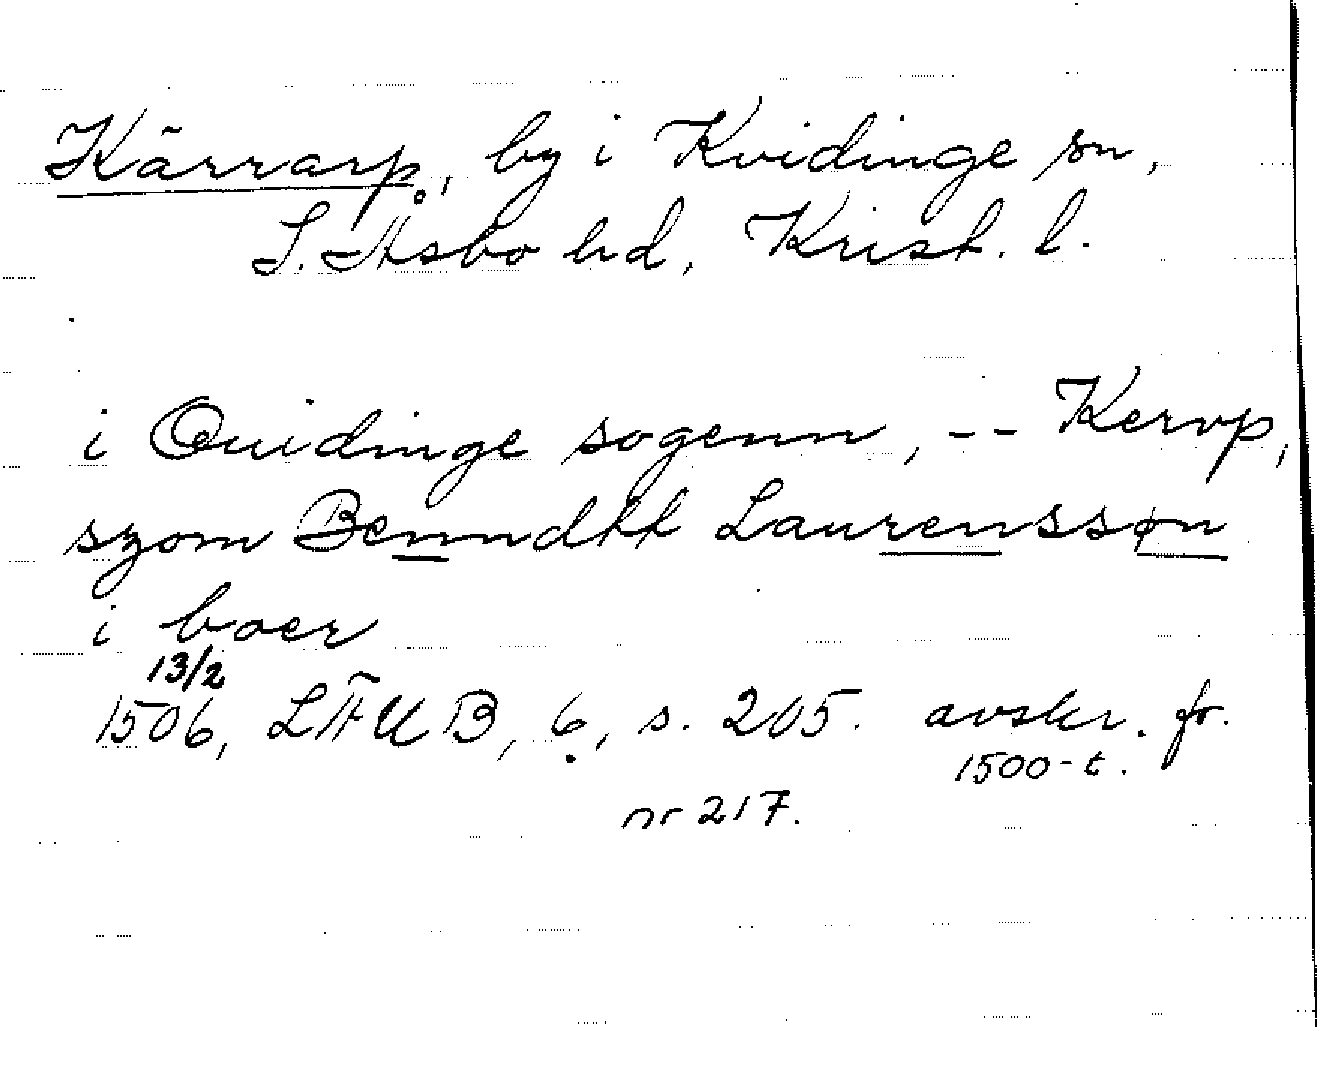 Kärrarp, by i Kvidinge sn,
S. Åsbo hd, Krist. l.
i Quidinge sogenn, -- Kervp,
szom Benndtt Laurenssøn
i boer
13/2
1506, LÄUB, 6, s. 205. avskr. fr.
1500-t.
nr 217.